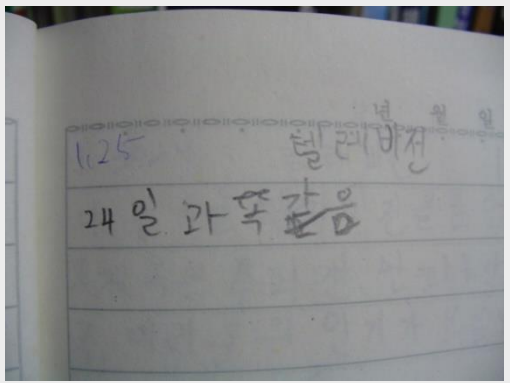 년 월 일
1.25 텔레비전
24일 과 똑 같음